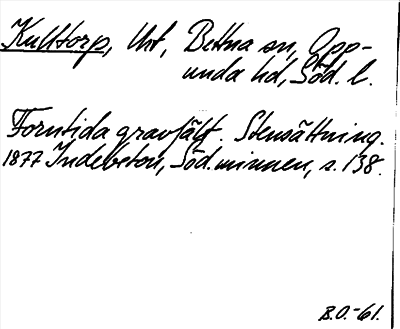 Kulltorp, Urt, Bettna sn, Opp-
unda hd, Söd. l.
Forntida gravfält. Stensättning.
1877 Indebetou, Söd. minnen, s. 138.
B.O.-61.